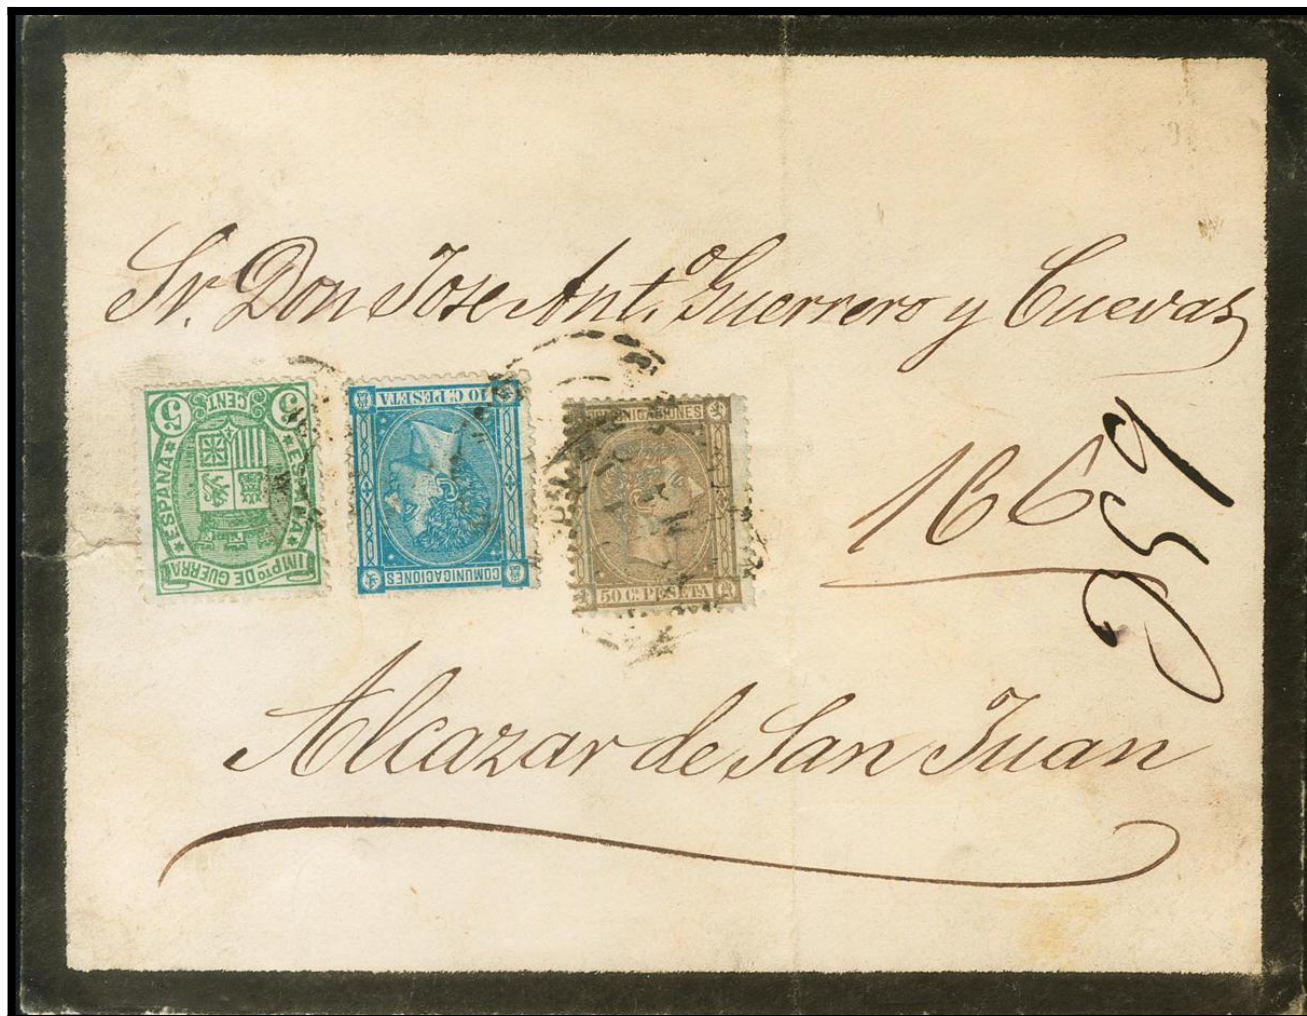 Sr. Don Jose Ant.º Guerrero y Cuevas
5 CENT 5
ESPAÑA
ESPAÑA
IMPTO DE GUERRA
10 C. PESETA
COMUNICACIONES
COMUNICACIONES
50 Cs PESETA
166
959
Alcazar de San Juan